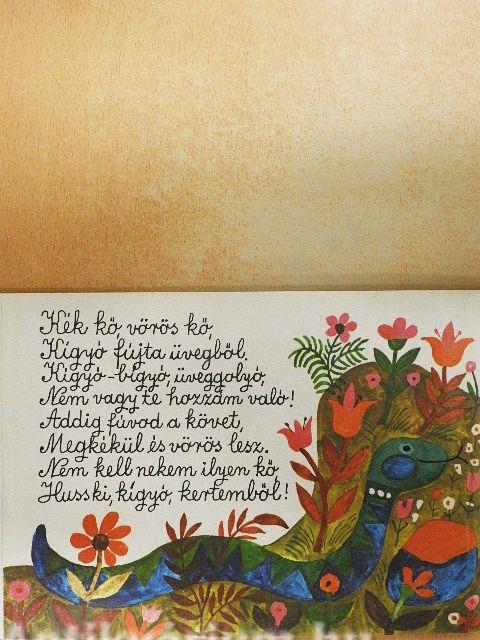 Kék kő, vörös kő,
Kígyó fújta üvegből.
Kígyó-bígyó, üveggolyó,
Nem vagy te hozzám való!
Addig fúvod a követ,
Megkékül és vörös lesz.
Nem kell nekem ilyen kő,
Husski, kígyó, kertemből!